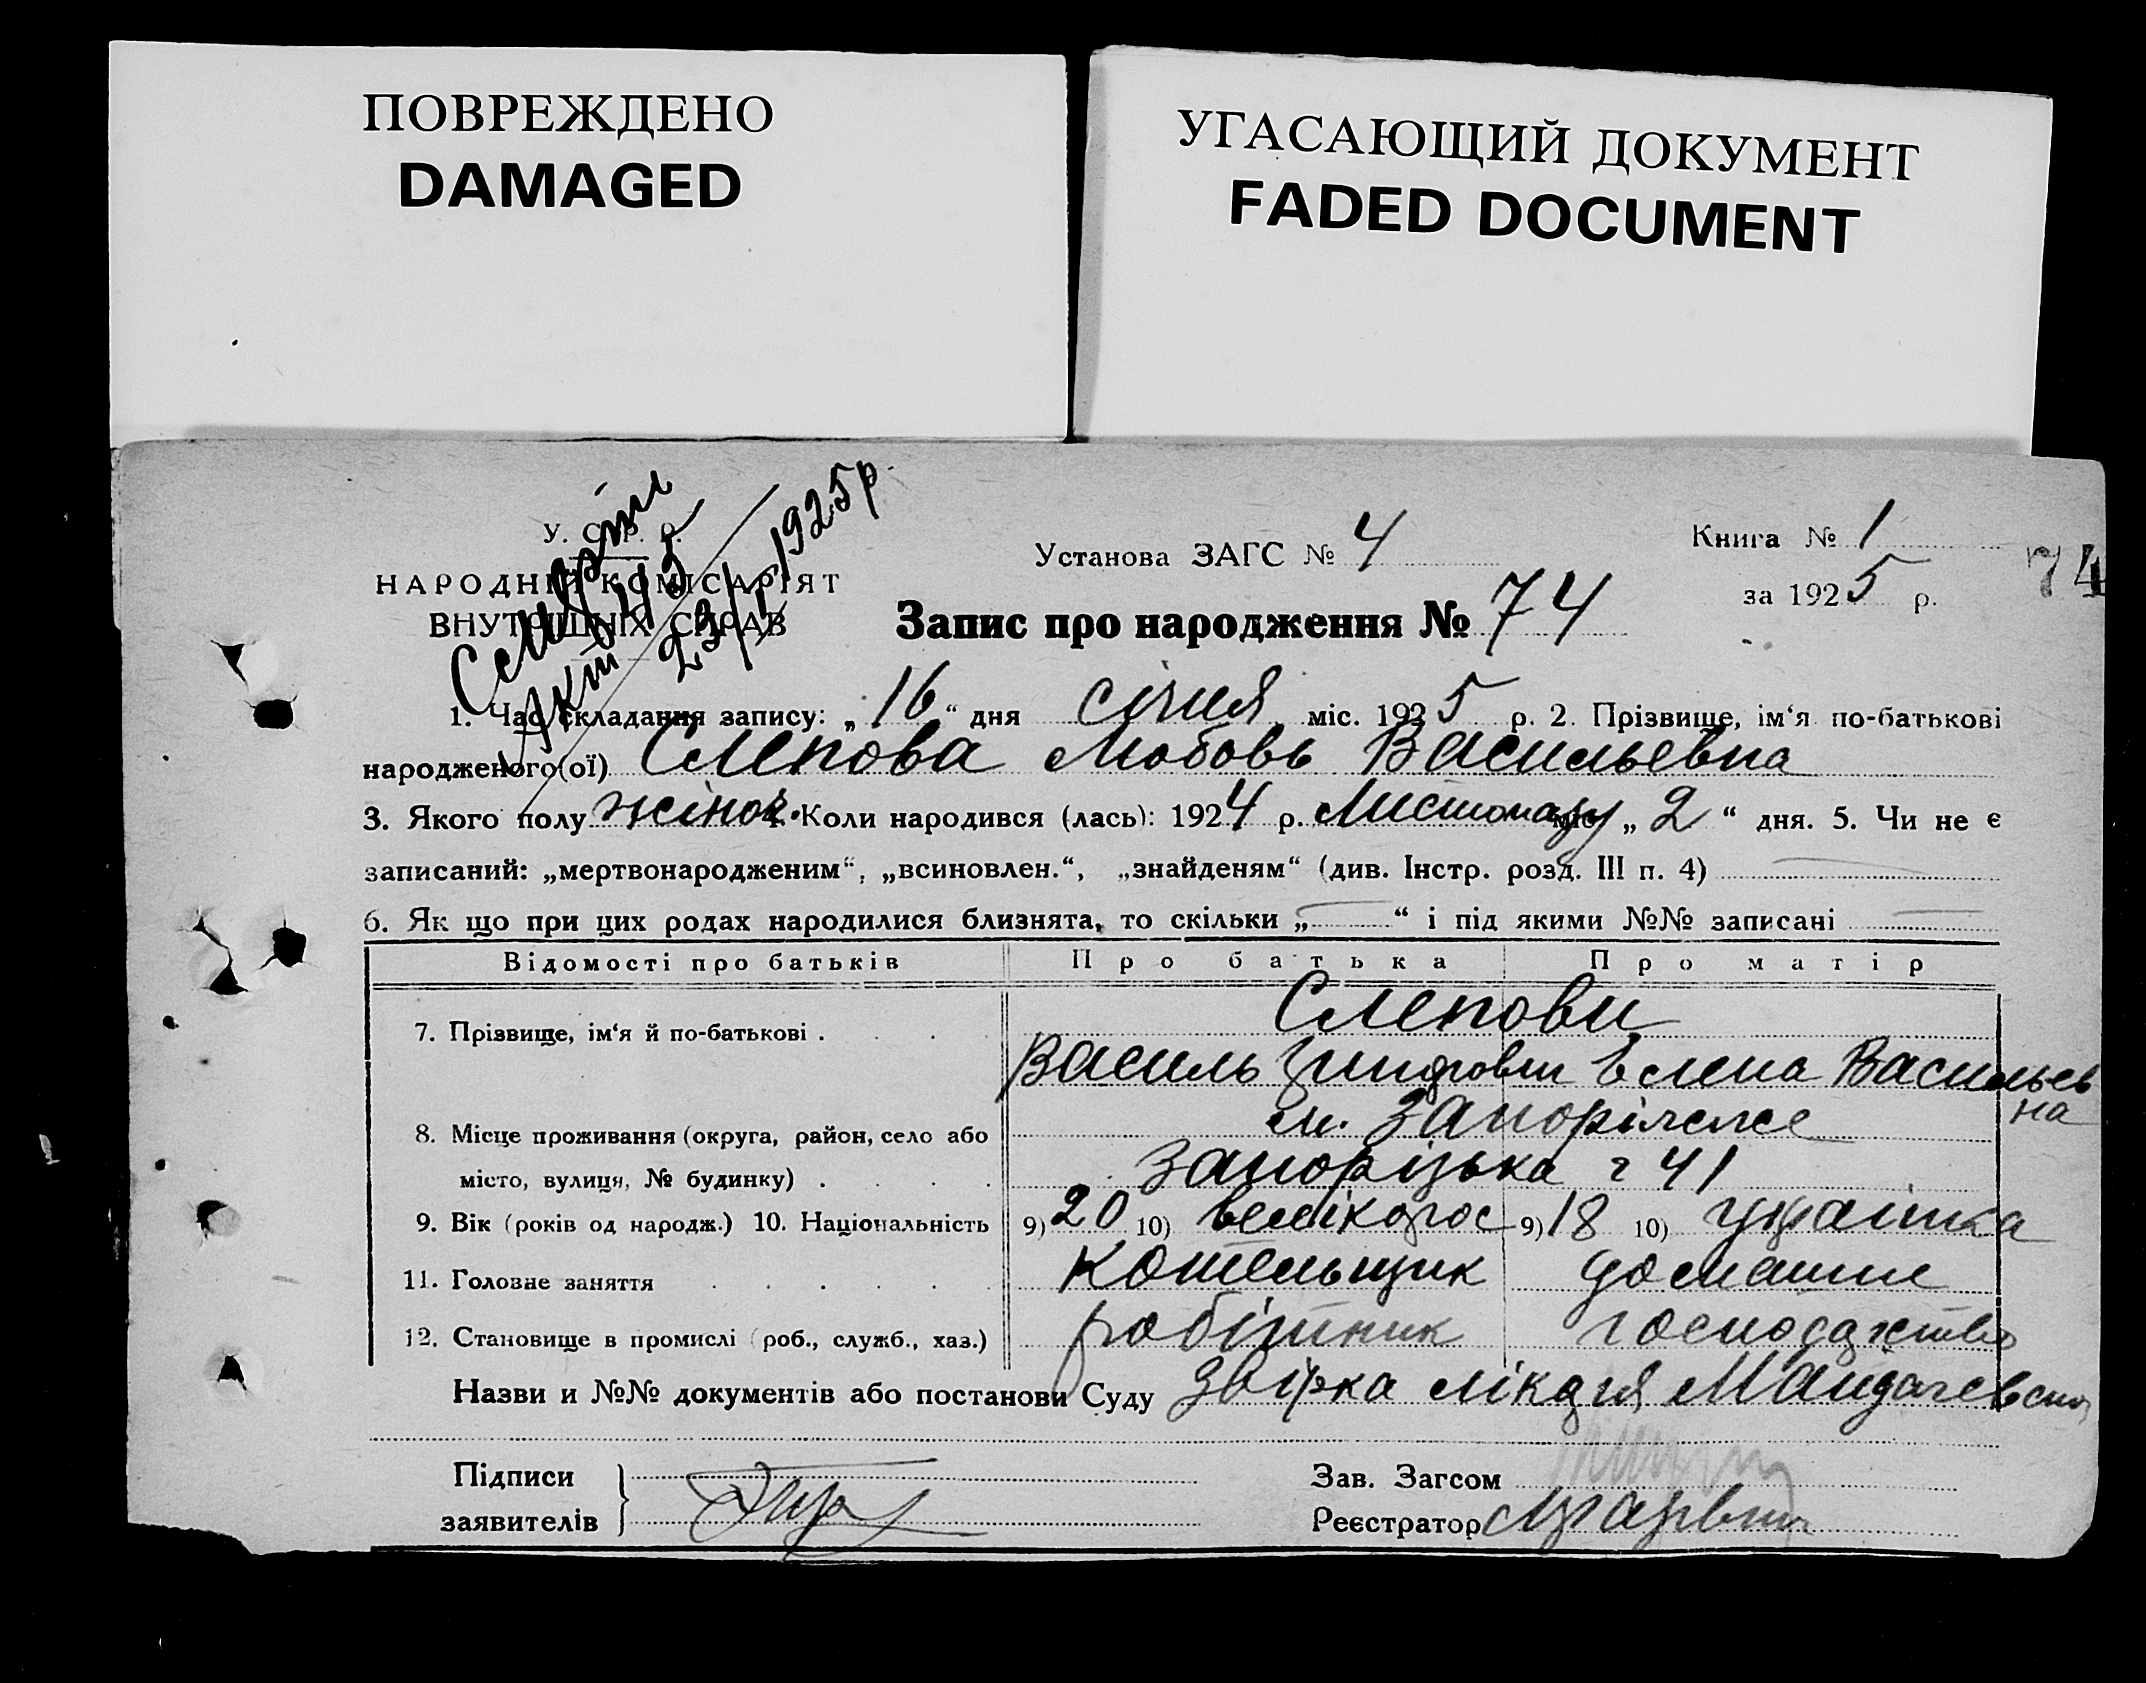 ПОВРЕЖДЕНО
DAMAGED
УГАСАЮЩИЙ ДОКУМЕНТ
FADED DOCUMENT
У. С. Р. Р.
НАРОДНІЙ КОМІСАРІЯТ
ВНУТРІШНІХ СПРАВ
Акт
23/I 1925 р.
Установа ЗАГС № 4
Книга № 1
за 1925 р.
74
Запис про народження № 74
1. Час складання запису: „16“ дня січня міс. 1925 р. 2. Прізвище, ім‘я по-батькові
народженого(ої) Слепова Любовь Васильевна
3. Якого полу жіноч. 4. Коли народився (лась): 1924 р. Листопаду міс. „2“ дня. 5. Чи не є
записаний: „мертвонародженим“, „всиновлен.“, „знайденям“ (див. Інстр. розд. III п. 4)
6. Як що при цих родах народилися близнята, то скільки „ “ і під якими №№ записані
Відомості про батьків Про батька Про матір
Слепови
7. Прізвище, ім‘я й по-батькові . . . .
Василь Елена Васильев
на
м. Запоріжже
8. Місце проживання (округа, район, село або
місто, вулиця, № будинку) . . . . Запорізька 41
9. Вік (років од народж.) 10. Національність 9) 20 10) велікорос 9) 18 10) украінка
11. Головне заняття . . . . . . Котельщик домашне
12. Становище в промислі (роб., служб., хаз.) робітник господарство
Назви и №№ документів або постанови Суду
Підписи
заявителів
Зав. Загсом
Реєстратор